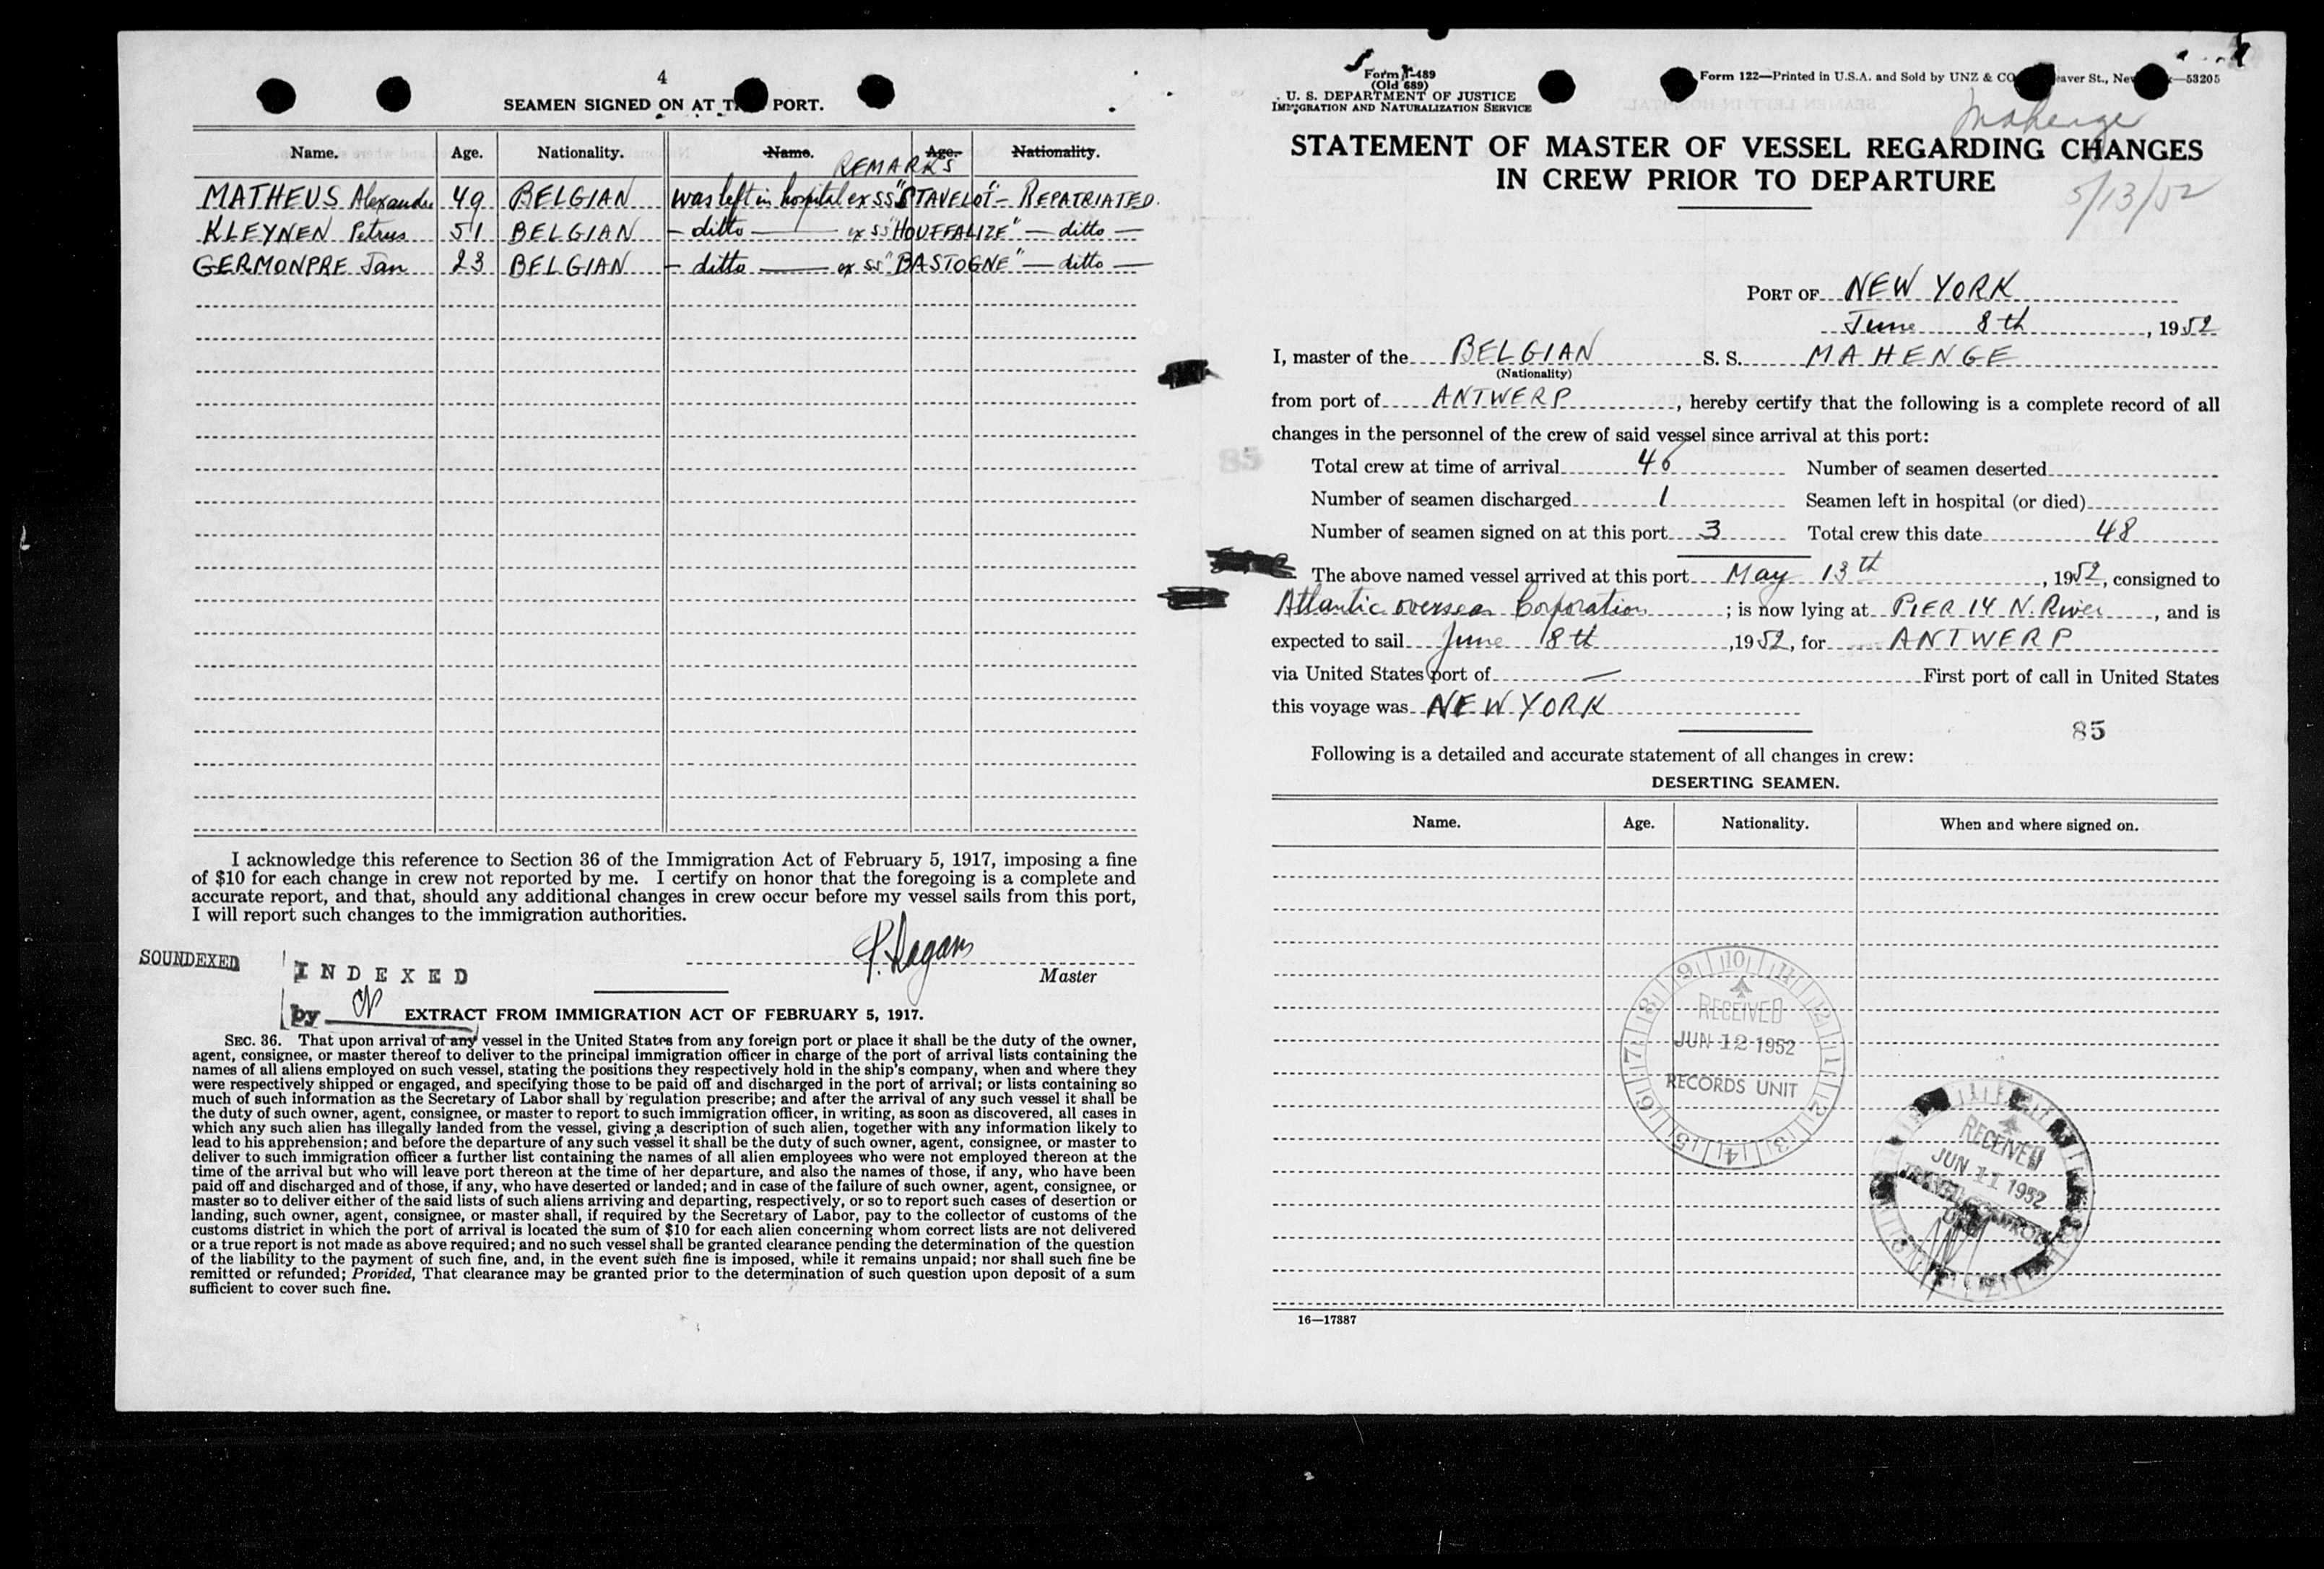 4
SEAMEN SIGNED ON AT T PORT.
Name. Age. Nationality. Name. Age. Nationality.
REMARKS
MATHEUS Alexander 49 BELGIAN was left in hospital ex SS "STAVELOT" - REPATRIATED.
KLEYNEN Petrus 51 BELGIAN - ditto - ex SS "HOUFFALIZE" - ditto -
GERMONPRE Jan 23 BELGIAN - ditto - ex SS "BASTOGNE" - ditto -
I acknowledge this reference to Section 36 of the Immigration Act of February 5, 1917, imposing a fine
of $10 for each change in crew not reported by me. I certify on honor that the foregoing is a complete and
accurate report, and that, should any additional changes in crew occur before my vessel sails from this port,
I will report such changes to the immigration authorities.
SOUNDEXED
INDEXED
Master
by
EXTRACT FROM IMMIGRATION ACT OF FEBRUARY 5, 1917.
SEC. 36. That upon arrival of any vessel in the United States from any foreign port or place it shall be the duty of the owner,
agent, consignee, or master thereof to deliver to the principal immigration officer in charge of the port of arrival lists containing the
names of all aliens employed on such vessel, stating the positions they respectively hold in the ship's company, when and where they
were respectively shipped or engaged, and specifying those to be paid off and discharged in the port of arrival; or lists containing so
much of such information as the Secretary of Labor shall by regulation prescribe; and after the arrival of any such vessel it shall be
the duty of such owner, agent, consignee, or master to report to such immigration officer, in writing, as soon as discovered, all cases in
which any such alien has illegally landed from the vessel, giving a description of such alien, together with any information likely to
lead to his apprehension; and before the departure of any such vessel it shall be the duty of such owner, agent, consignee, or master to
deliver to such immigration officer a further list containing the names of all alien employees who were not employed thereon at the
time of the arrival but who will leave port thereon at the time of her departure, and also the names of those, if any, who have been
paid off and discharged and of those, if any, who have deserted or landed; and in case of the failure of such owner, agent, consignee, or
master so to deliver either of the said lists of such aliens arriving and departing, respectively, or so to report such cases of desertion or
landing, such owner, agent, consignee, or master shall, if required by the Secretary of Labor, pay to the collector of customs of the
customs district in which the port of arrival is located the sum of $10 for each alien concerning whom correct lists are not delivered
or a true report is not made as above required; and no such vessel shall be granted clearance pending the determination of the question
of the liability to the payment of such fine, and, in the event such fine is imposed, while it remains unpaid; nor shall such fine be
remitted or refunded; Provided, That clearance may be granted prior to the determination of such question upon deposit of a sum
sufficient to cover such fine.
Form I-489
(Old 689)
U. S. DEPARTMENT OF JUSTICE
IMMIGRATION AND NATURALIZATION SERVICE
Form 122—Printed in U.S.A. and Sold by UNZ & CO eaver St., New k—53205
Mahenge
STATEMENT OF MASTER OF VESSEL REGARDING CHANGES
IN CREW PRIOR TO DEPARTURE
5/13/52
PORT OF NEW YORK
June 8th, 1952
I, master of the BELGIAN S. S. MAHENGE
(Nationality)
from port of ANTWERP, hereby certify that the following is a complete record of all
changes in the personnel of the crew of said vessel since arrival at this port:
Total crew at time of arrival 46 Number of seamen deserted
Number of seamen discharged 1 Seamen left in hospital (or died)
Number of seamen signed on at this port 3 Total crew this date 48
The above named vessel arrived at this port May 13th, 1952, consigned to
Atlantic overseas Corporation; is now lying at PIER 14 N. River, and is
expected to sail June 8th, 1952, for ANTWERP
via United States port of — First port of call in United States
this voyage was NEW YORK
85
Following is a detailed and accurate statement of all changes in crew:
DESERTING SEAMEN.
Name. Age. Nationality. When and where signed on.
9 10 11 12 1 2 3 4 5 6 7 8
RECEIVED
JUN 12 1952
RECORDS UNIT
RECEIVED
JUN 11 1952
16—17387